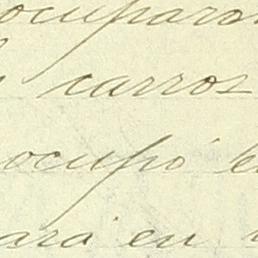 ocuparon
carros
ocupó e
ará en